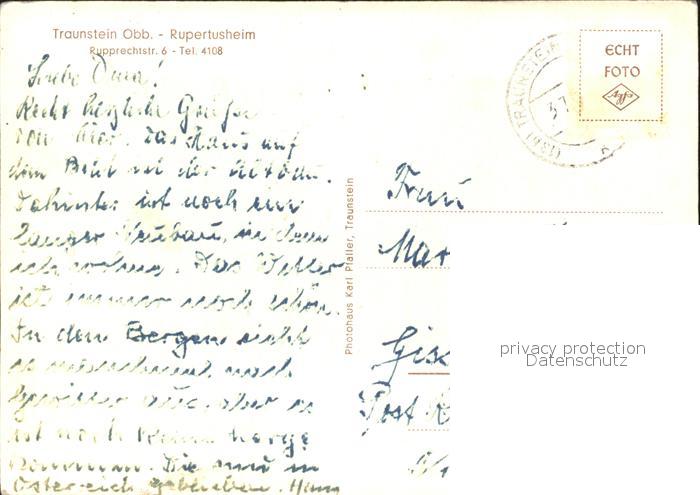 Traunstein Obb. - Rupertusheim
Rupprechtstr. 6 - Tel. 4108
Liebe Oma!
Recht herzliche Grüße
von hier. Das Haus auf
dem Bild ist der Altbau.
Dahinter ist noch ein
langer Neubau, in dem
ich wohne. Das Wetter
ist immer noch schön.
In den Bergen sieht
es manchmal nach
Gewitter aus, aber es
ist noch keins herge
kommen. Die sind in
Österreich geblieben. Hans
Photohaus Karl Pfaller, Traunstein
ECHT
FOTO
Agfa
TRAUNSTEIN
Frau
Mar
Post
privacy protection
Datenschutz